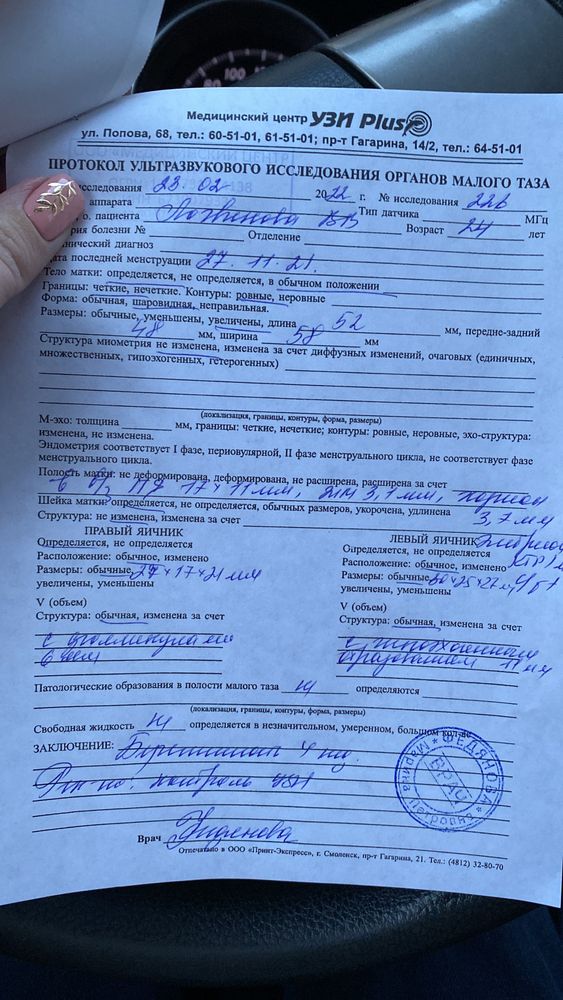 Медицинский центр УЗИ Plus
ул. Попова, 68, тел.: 60-51-01, 61-51-01; пр-т Гагарина, 14/2, тел.: 64-51-01
ПРОТОКОЛ УЛЬТРАЗВУКОВОГО ИССЛЕДОВАНИЯ ОРГАНОВ МАЛОГО ТАЗА
исследования 23.02 2022 г. № исследования 226
аппарата Тип датчика МГц
о. пациента Возраст 24 лет
рия болезни № Отделение
нический диагноз
ата последней менструации 27.11.21.
Тело матки: определяется, не определяется, в обычном положении
Границы: четкие, нечеткие. Контуры: ровные, неровные
Форма: обычная, шаровидная, неправильная.
Размеры: обычные, уменьшены, увеличены, длина 52 мм, передне-задний
48 мм, ширина 58 мм
Структура миометрия не изменена, изменена за счет диффузных изменений, очаговых (единичных,
множественных, гипоэхогенных, гетерогенных)
(локализация, границы, контуры, форма, размеры)
М-эхо: толщина мм, границы: четкие, нечеткие; контуры: ровные, неровные, эхо-структура:
изменена, не изменена.
Эндометрия соответствует I фазе, периовулярной, II фазе менструального цикла, не соответствует фазе
менструального цикла.
Полость матки: не деформирована, деформирована, не расширена, расширена за счет
в п/я 17×11 мм, 3,1 мм, хорион
Шейка матки: определяется, не определяется, обычных размеров, укорочена, удлинена 3,7 мм
Структура: не изменена, изменена за счет
ПРАВЫЙ ЯИЧНИК
Определяется, не определяется
Расположение: обычное, изменено
Размеры: обычные, 27×17×21 мм
увеличены, уменьшены
V (объем)
Структура: обычная, изменена за счет
с фолликулами
6 мм
ЛЕВЫЙ ЯИЧНИК эмбрион
Определяется, не определяется
Расположение: обычное, изменено
Размеры: обычные
увеличены, уменьшены
V (объем)
Структура: обычная, изменена за счет
с гипоэхогенным
образованием 11 мм
Патологические образования в полости малого таза не определяются
(локализация, границы, контуры, форма, размеры)
Свободная жидкость не определяется в незначительном, умеренном, большом кол-ве
ЗАКЛЮЧЕНИЕ: Беременность 4 нед.
контроль УЗИ
ФЕДЯНОВА Марина Петровна ВРАЧ
Врач Федянова
Отпечатано в ООО «Принт-Экспресс», г. Смоленск, пр-т Гагарина, 21. Тел.: (4812) 32-80-70